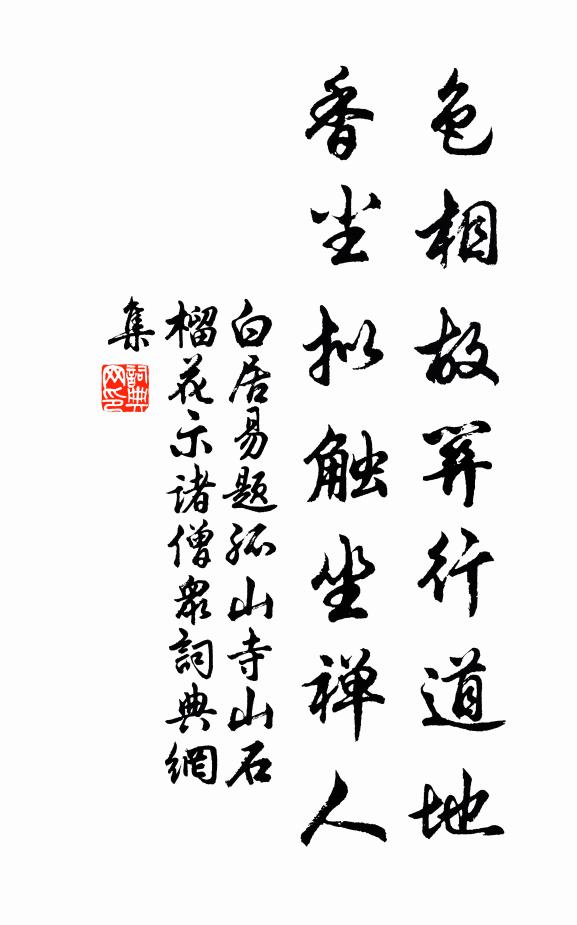 色相故關行道地
香尘拟触坐禅人
白居易题孤山寺山石
榴花示諸僧眾詞典網
集
詞典网印